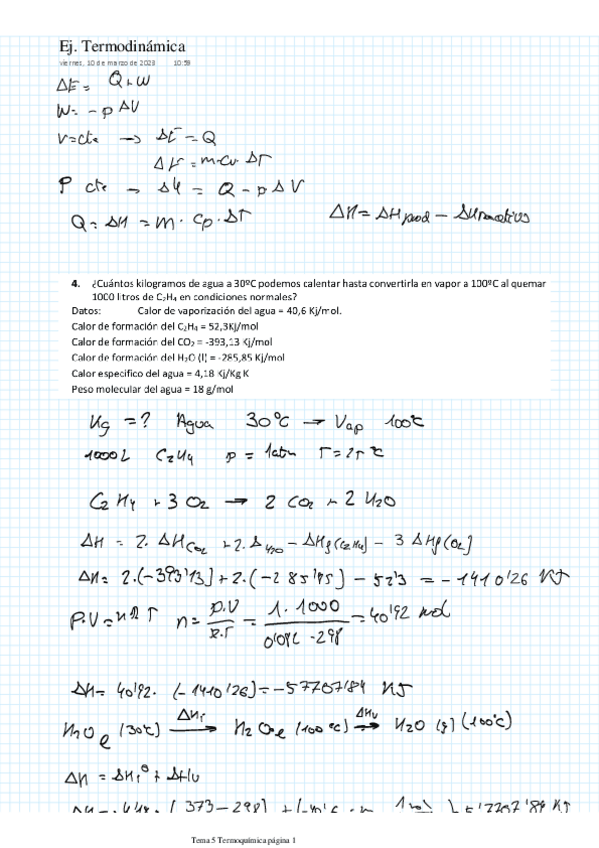 Ej. Termodinámica
viernes, 10 de marzo de 2023 10:59
ΔE = Q + W
W = - p ΔV
V = cte → ΔE = Q
ΔE = m·Cv·ΔT
P cte → ΔU = Q - p ΔV
Q = ΔH = m · Cp · ΔT ΔH = ΔH prod - ΔH reactivos
4. ¿Cuántos kilogramos de agua a 30ºC podemos calentar hasta convertirla en vapor a 100ºC al quemar
1000 litros de C₂H₄ en condiciones normales?
Datos: Calor de vaporización del agua = 40,6 Kj/mol.
Calor de formación del C₂H₄ = 52,3Kj/mol
Calor de formación del CO₂ = -393,13 Kj/mol
Calor de formación del H₂O (l) = -285,85 Kj/mol
Calor especifico del agua = 4,18 Kj/Kg K
Peso molecular del agua = 18 g/mol
Kg = ? Agua 30ºC → Vap 100ºC
1000 L C2H4 p = 1 atm T = 25 ºC
C2 H4 + 3 O2 → 2 CO2 + 2 H2O
ΔH = 2. ΔH CO2 + 2. Δ H2O - ΔHf (C2H4) - 3 ΔHf (O2)
ΔH = 2.(-393'13) + 2.(-285'85) - 52'3 = -1410'26 KJ
P.V = n R T n = p.V / R.T = 1. 1000 / 0'082 · 298 = 40'92 mol
ΔH = 40'92. (-1410'26) = -57707'84 KJ
H2O l (30ºC) ΔH1 → H2O l (100ºC) ΔHv → H2O (g) (100ºC)
ΔH = ΔH1º + ΔHv